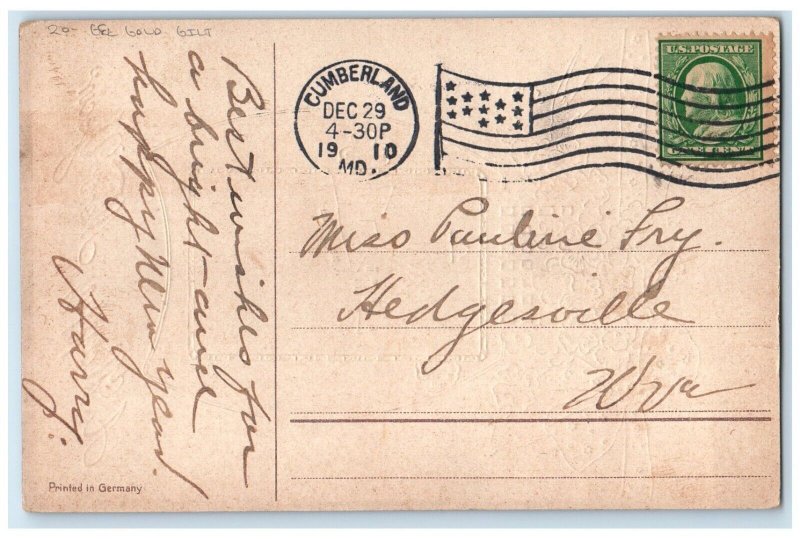 20- EEL GOLD GILT
Best wishes for
a bright and
happy New Year.
Harry.
CUMBERLAND
DEC 29
4-30P
1910
MD.
U.S. POSTAGE
Miss Pauline Fry.
Hedgesville
W va
Printed in Germany